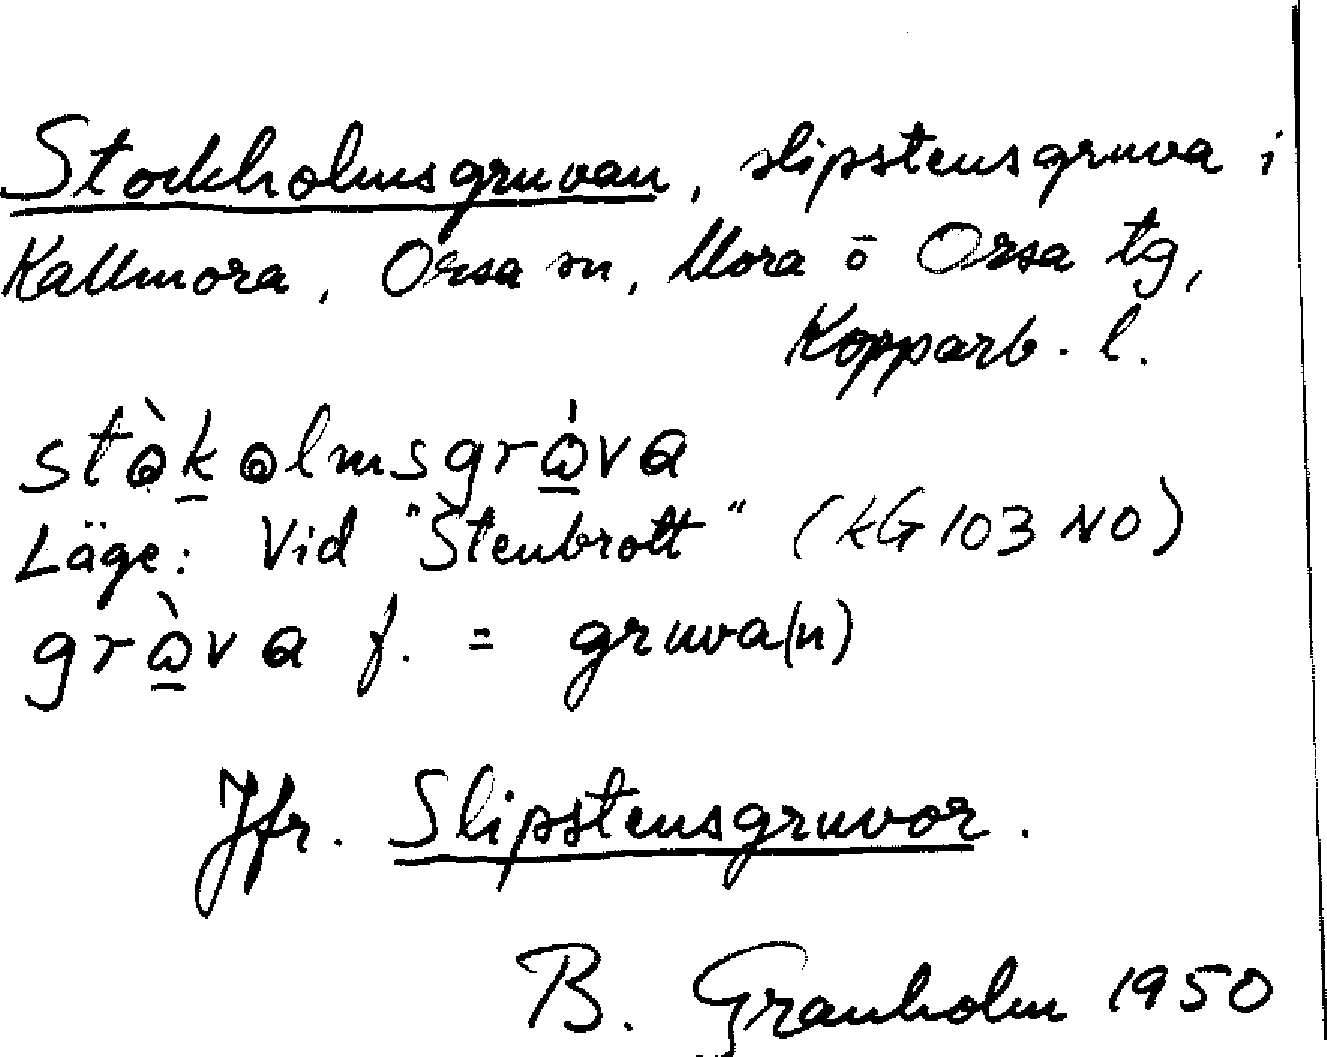 Stockholmsgruvan, slipstensgruva i
Kallmora, Orsa sn, Mora o Orsa tg,
Kopparb. l.
stòkolmsgróva
Läge: Vid "Stenbrott" (KG 103 NO)
gròva f. = gruva(n)
Jfr. Slipstensgruvor.
B. Granholm 1950